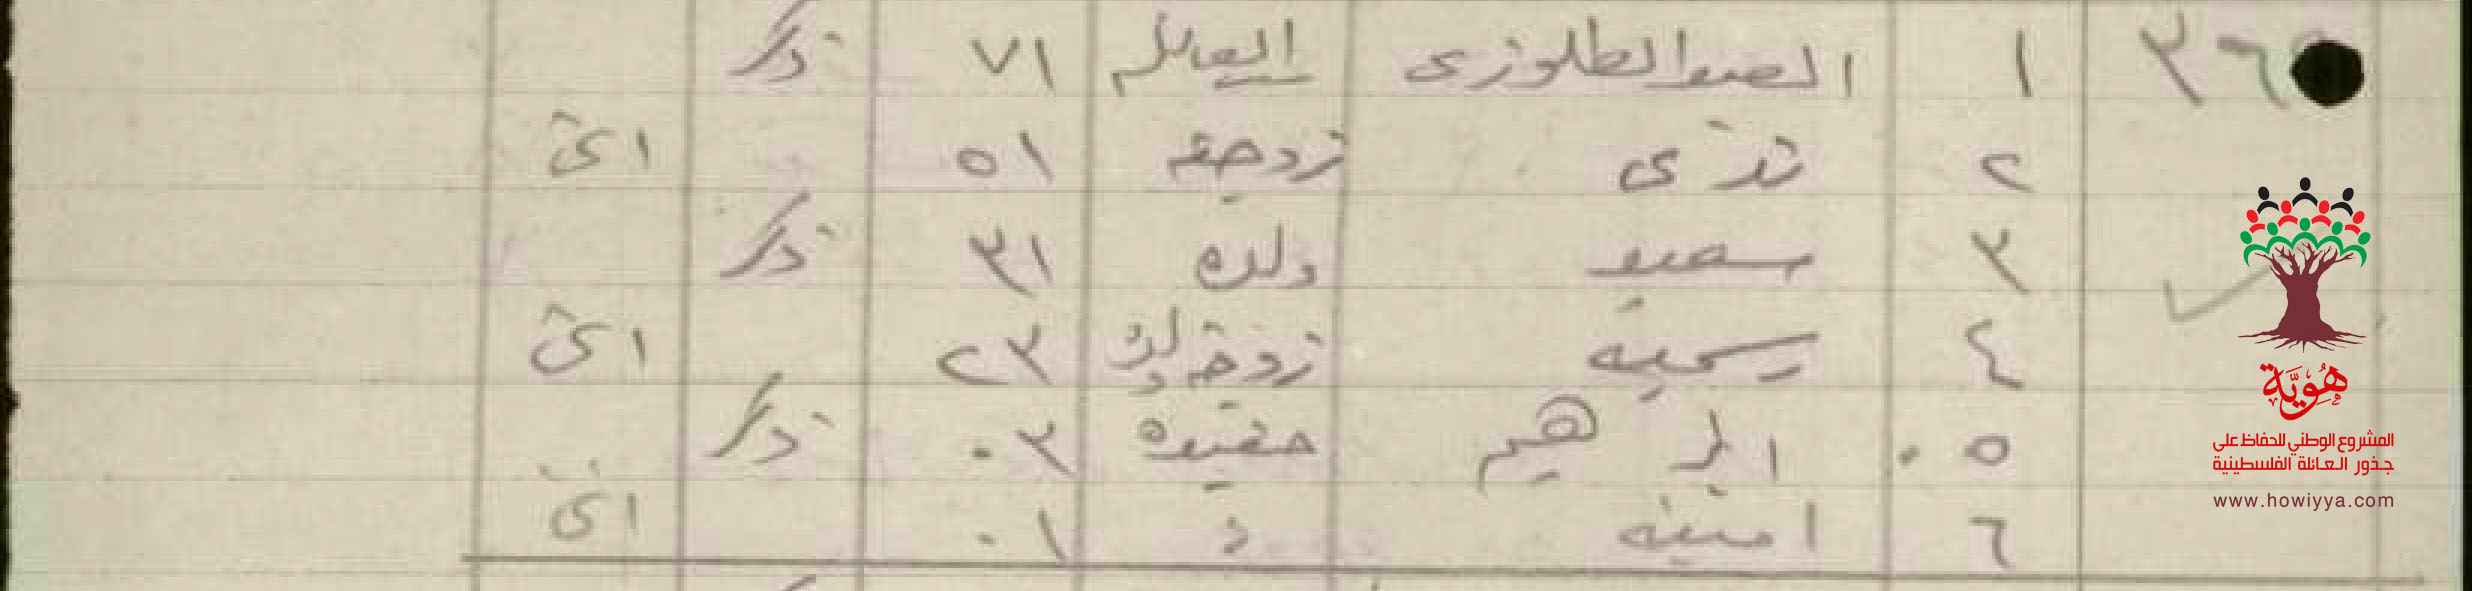 ٣٦ ١ العبد الطلوزى العائله ٧١ ذكر
٢ ندى زوجته ٥١ انثى
٣ سعيد ولده ٣١ ذكر
٤ رسميه زوجة ولده ٢٣ انثى
٥ ابراهيم حفيده ٠٣ ذكر
٦ امينه ٠١ انثى
هُوِيَّة
المشروع الوطني للحفاظ على
جذور العائلة الفلسطينية
www.howiyya.com